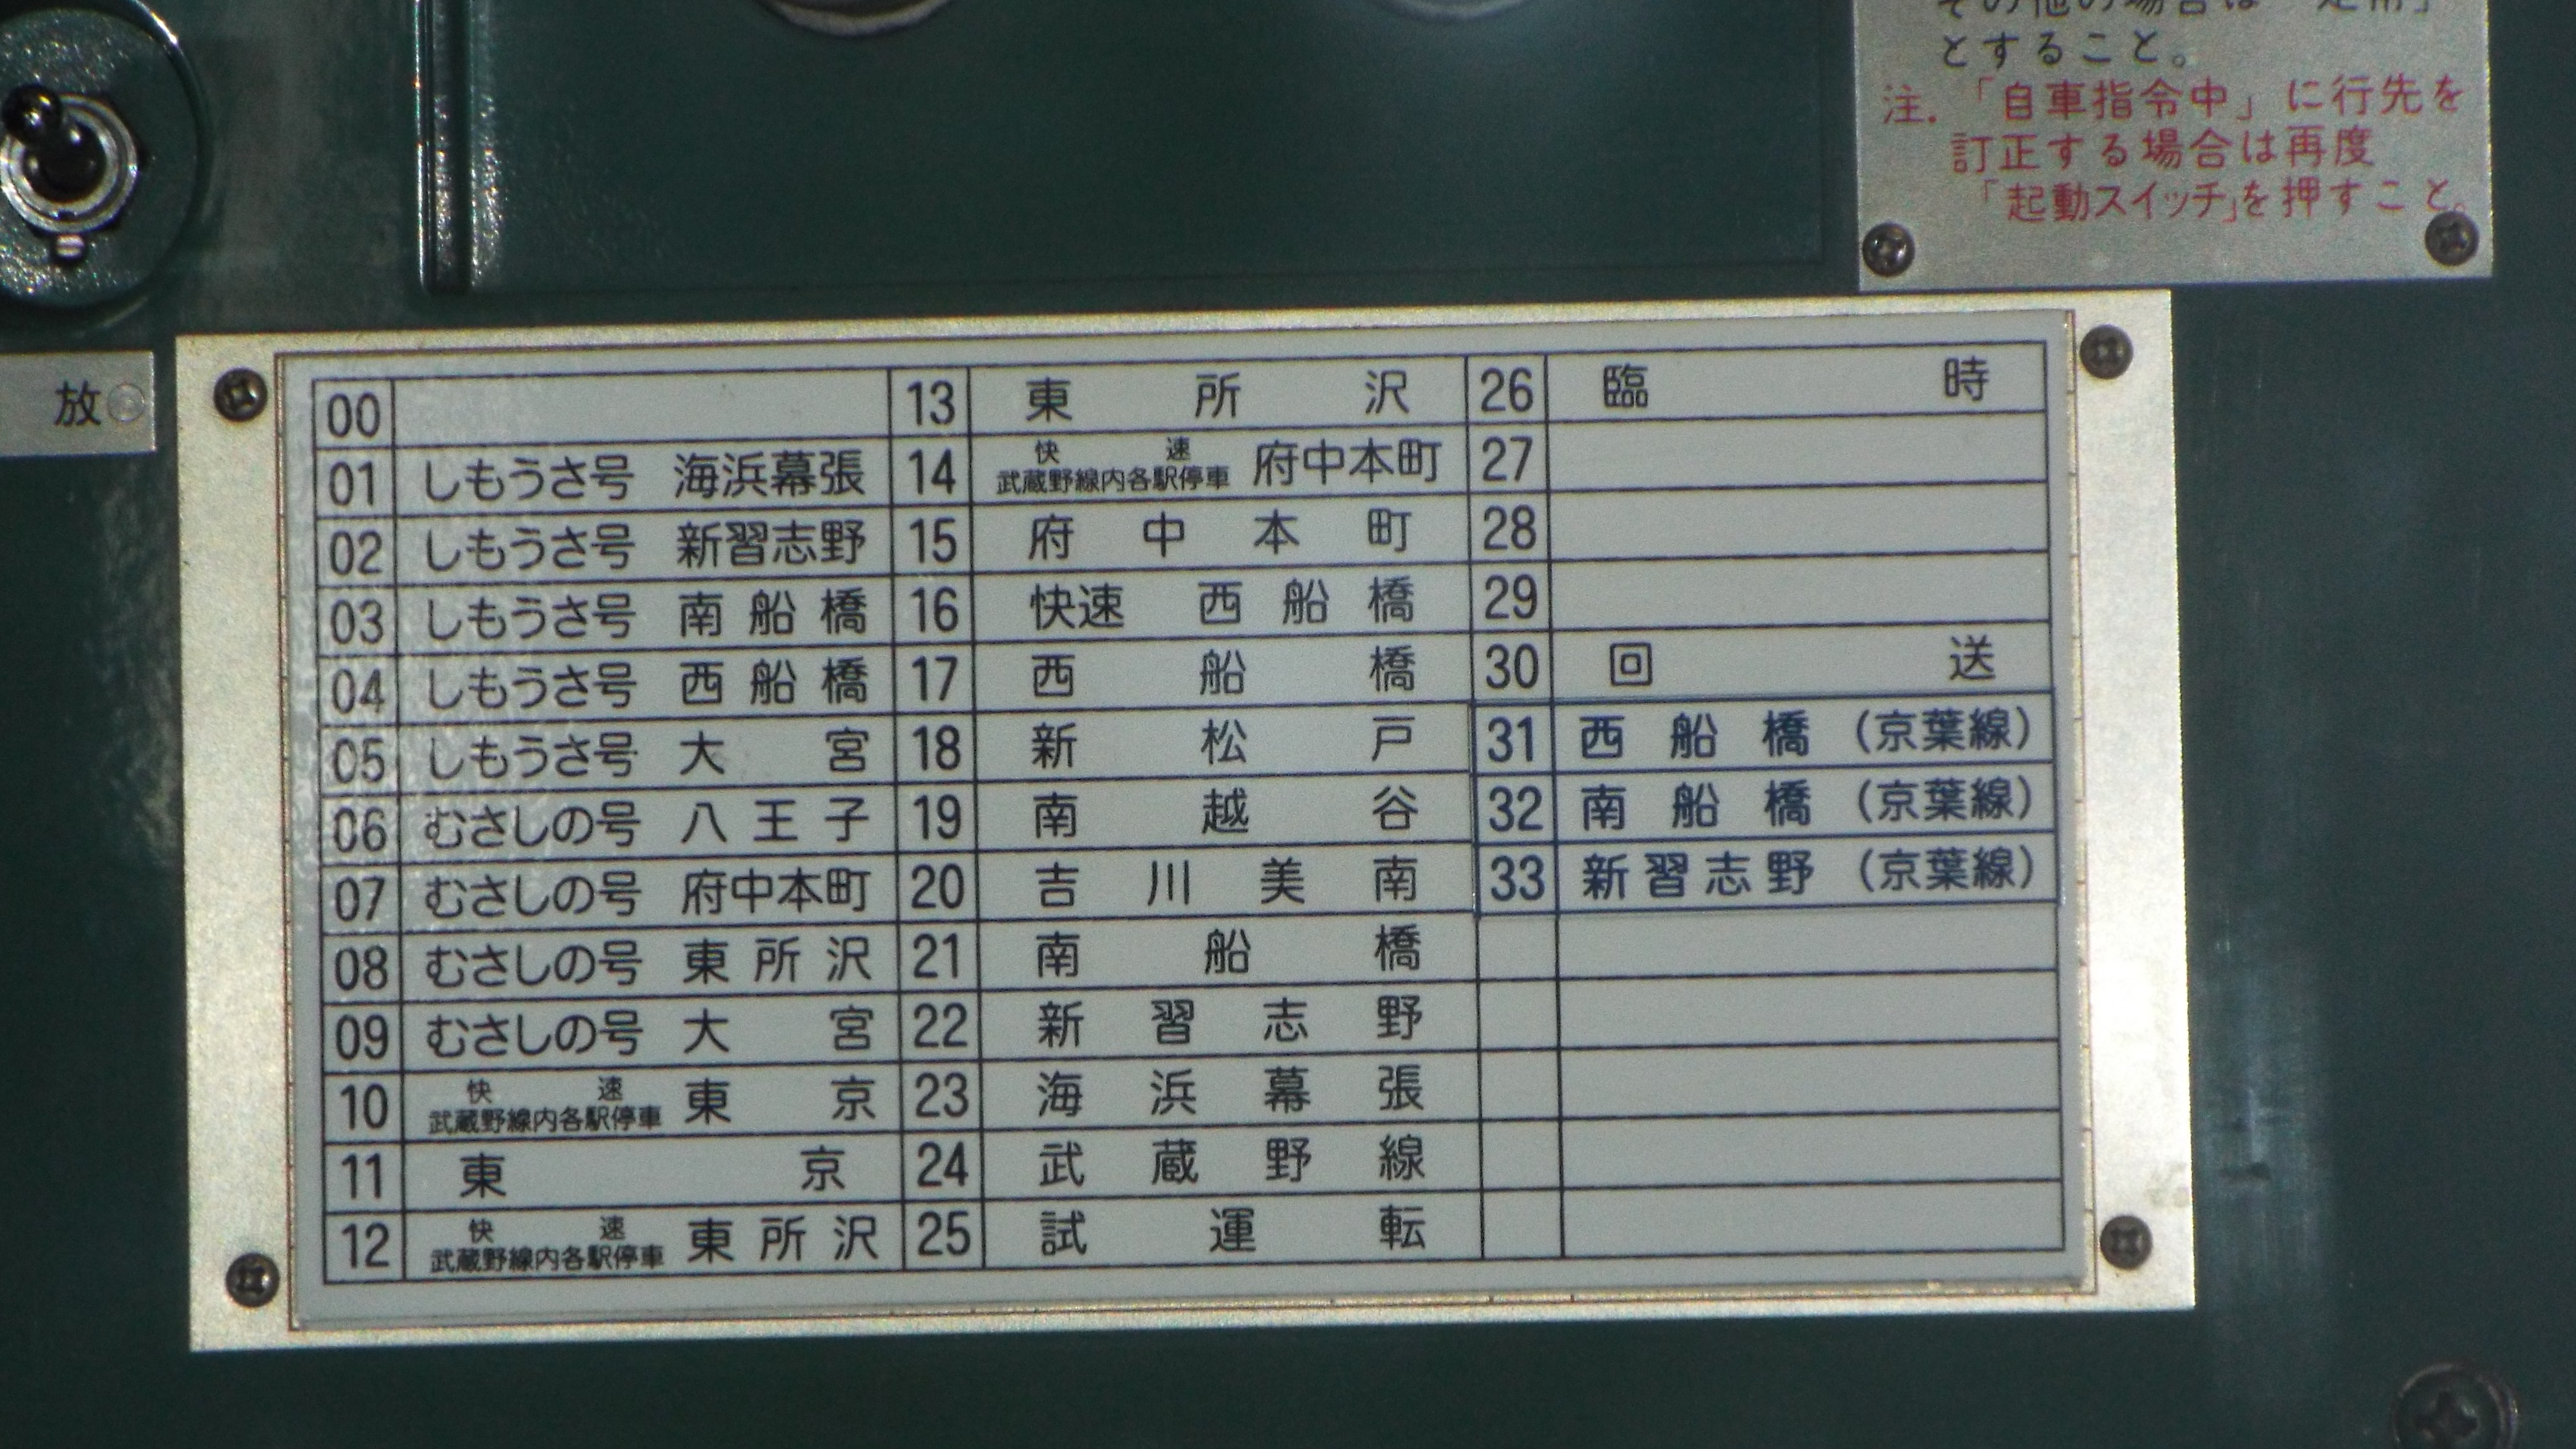 とすること。
注.「自車指令中」に行先を
訂正する場合は再度
「起動スイッチ」を押すこと。
放
00
01 しもうさ号 海浜幕張
02 しもうさ号 新習志野
03 しもうさ号 南船橋
04 しもうさ号 西船橋
05 しもうさ号 大宮
06 むさしの号 八王子
07 むさしの号 府中本町
08 むさしの号 東所沢
09 むさしの号 大宮
10 快速 武蔵野線内各駅停車 東京
11 東京
12 快速 武蔵野線内各駅停車 東所沢
13 東所沢
14 快速 武蔵野線内各駅停車 府中本町
15 府中本町
16 快速 西船橋
17 西船橋
18 新松戸
19 南越谷
20 吉川美南
21 南船橋
22 新習志野
23 海浜幕張
24 武蔵野線
25 試運転
26 臨時
27
28
29
30 回送
31 西船橋(京葉線)
32 南船橋(京葉線)
33 新習志野(京葉線)